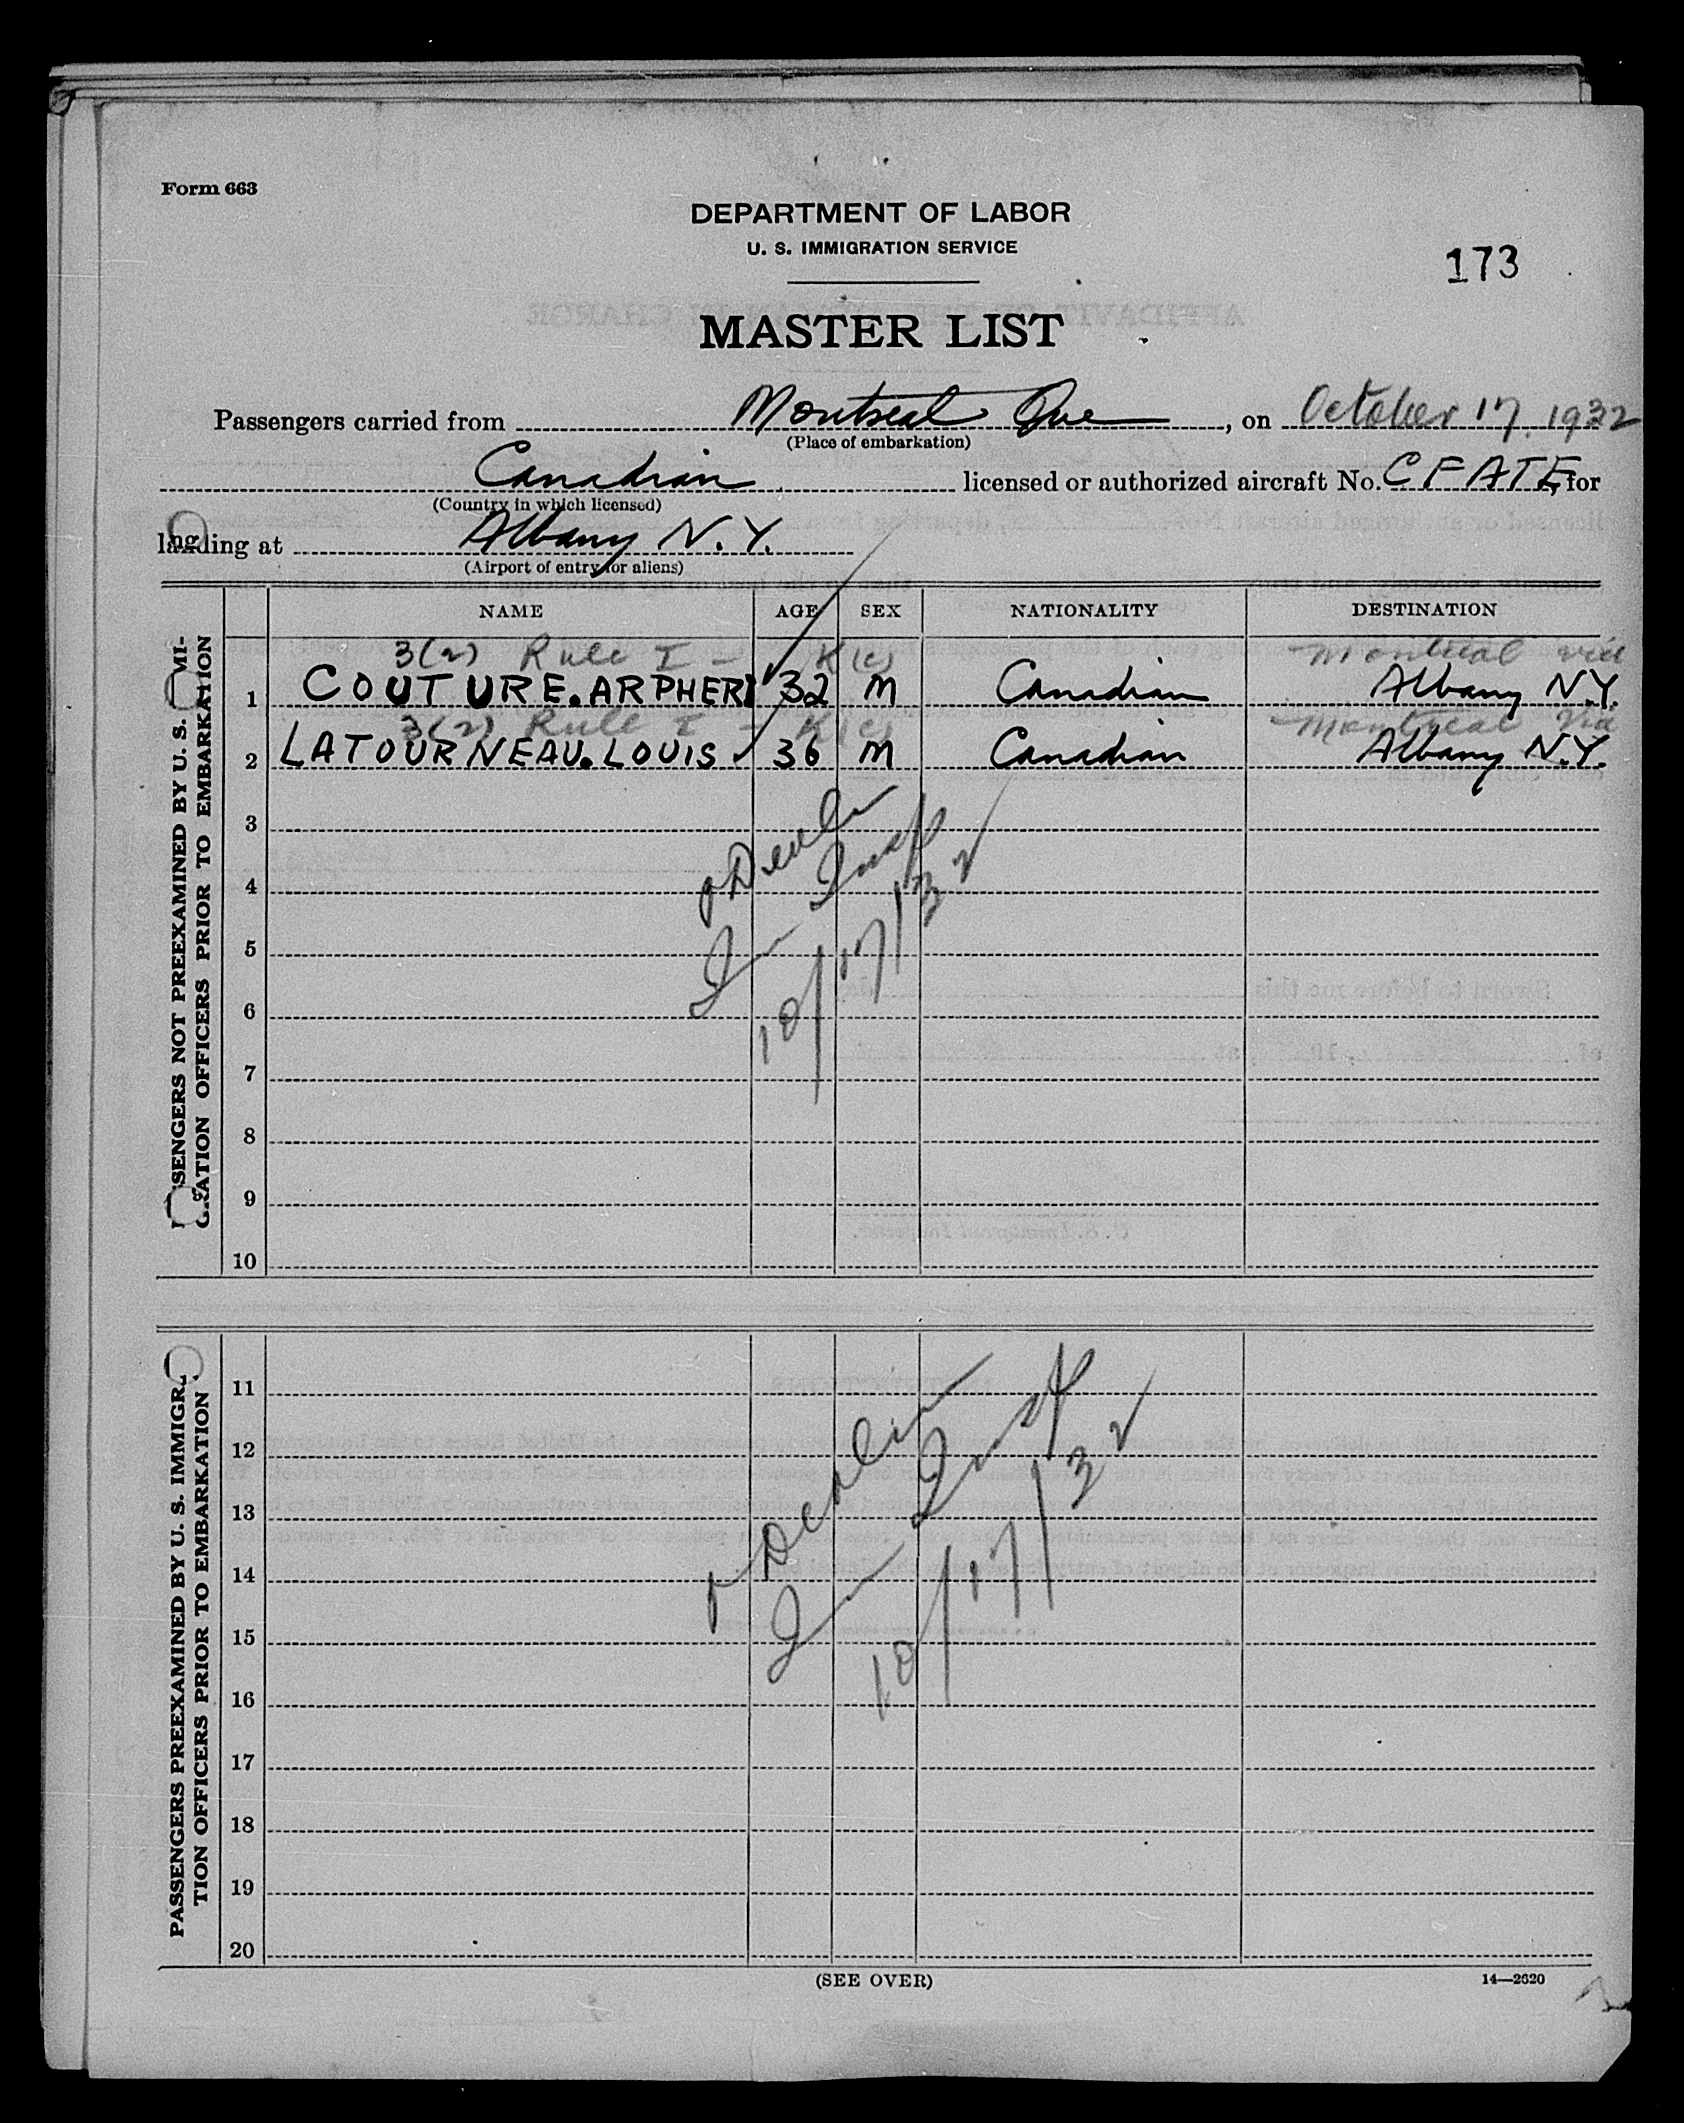 Form 663
DEPARTMENT OF LABOR
U. S. IMMIGRATION SERVICE
173
MASTER LIST
Passengers carried from Montreal Que, on October 17, 1932
(Place of embarkation)
Canadian licensed or authorized aircraft No. CFATE, for
(Country in which licensed)
landing at Albany N.Y.
(Airport of entry for aliens)
NAME AGE SEX NATIONALITY DESTINATION
3(2) Rule I - K(c) Montreal via
1 COUTURE. ARPHERI 32 M Canadian Albany N.Y.
3(2) Rule I - K(c) Montreal via
2 LATOURNEAU. LOUIS 36 M Canadian Albany N.Y.
3
4
5
6
7
8
9
10
Devlin
Imm Insp
10/17/32
SENGERS NOT PREEXAMINED BY U. S. MI-
GRATION OFFICERS PRIOR TO EMBARKATION
11
12
13
14
15
16
17
18
19
20
Devlin
Imm Insp
10/17/32
PASSENGERS PREEXAMINED BY U. S. IMMIGRA-
TION OFFICERS PRIOR TO EMBARKATION
(SEE OVER)
14—2620